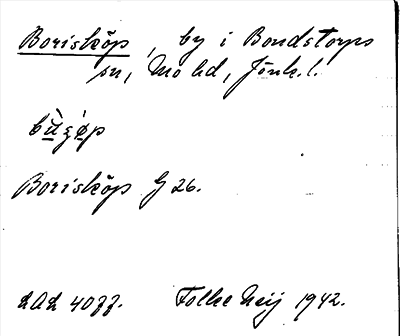 Borisköp, by i Bondstorps
sn, Mo hd, Jönk. l.
Boriskŏp G 26.
LAL 4077. Folke Heij 1942.